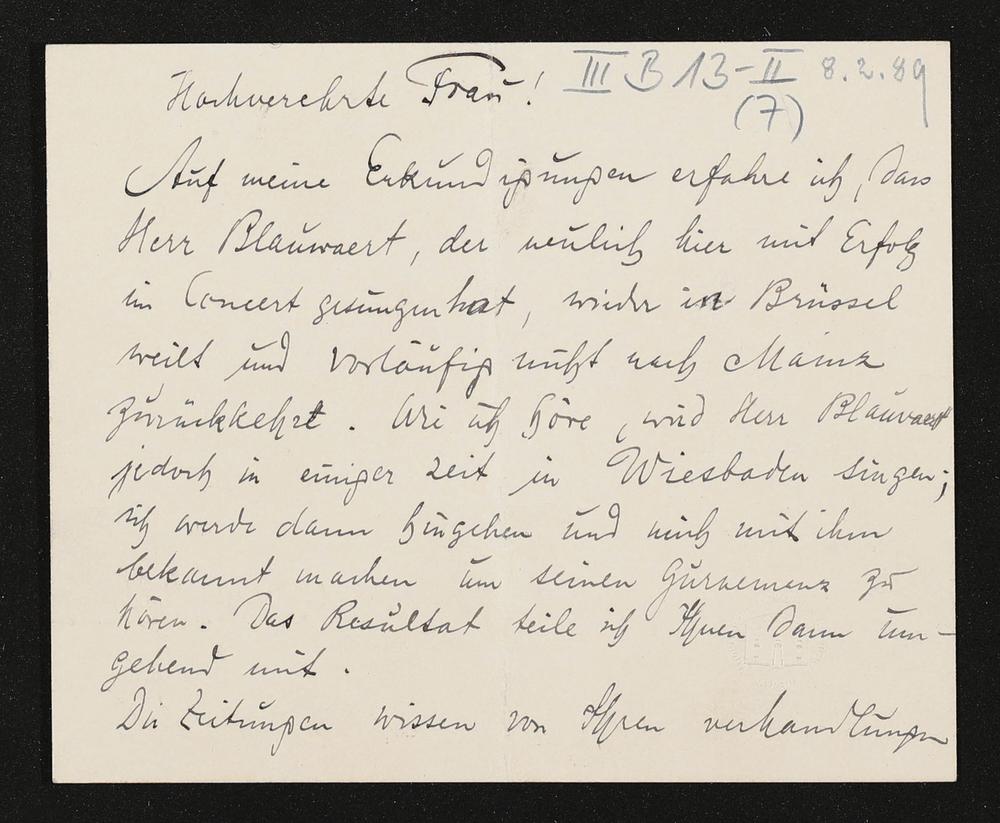 Hochverehrte Frau! III B 13-II 8.2.89
(7)
Auf meine Erkundigungen erfahre ich, dass
Herr Blauwaert, der neulich hier mit Erfolg
im Concert gesungen hat, wieder in Brüssel
weilt und vorläufig nicht nach Mainz
zurückkehrt. Wie ich höre, wird Herr Blauwaert
jedoch in einiger Zeit in Wiesbaden singen;
ich werde dann hingehen und mich mit ihm
bekannt machen um seinen Gurnemanz zu
hören. Das Resultat teile ich Ihnen dann um-
gehend mit.
Die Zeitungen wissen von Ihren verhandlungen